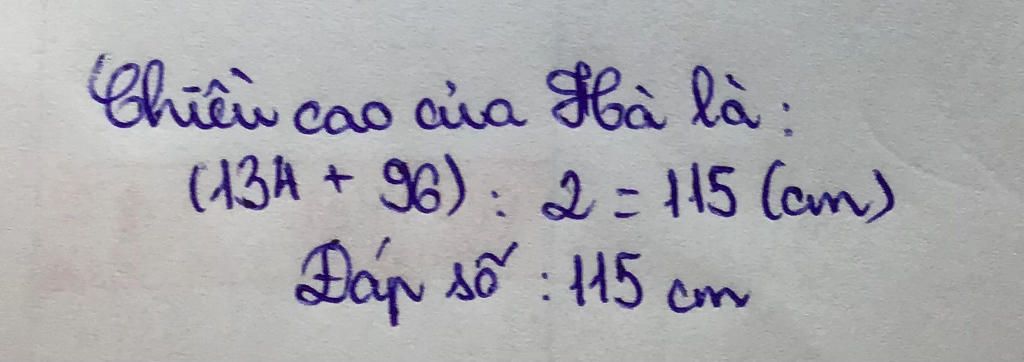 Chiều cao của Hà là:
(134 + 96) : 2 = 115 (cm)
Đáp số : 115 cm